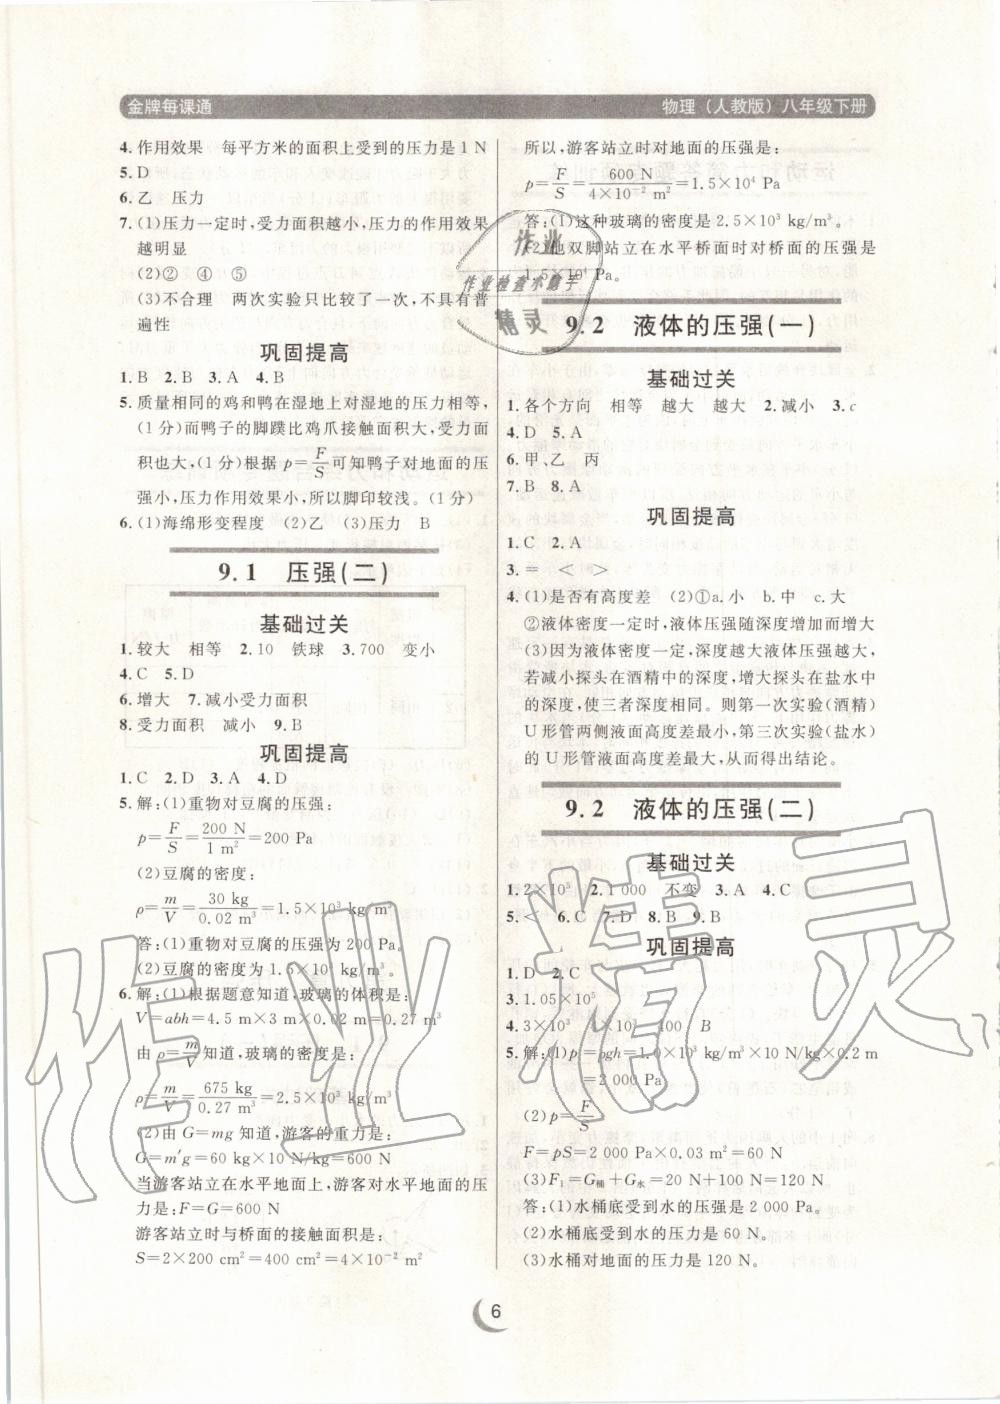 金牌每课通
物理（人教版）八年级下册
4.作用效果　每平方米的面积上受到的压力是1 N
5.D
6.乙　压力
7.(1)压力一定时,受力面积越小,压力的作用效果
越明显
(2)②　④　⑤
(3)不合理　两次实验只比较了一次,不具有普
遍性
巩固提高
1.B　2.B　3.A　4.B
5.质量相同的鸡和鸭在湿地上对湿地的压力相等,
(1分)而鸭子的脚蹼比鸡爪接触面积大,受力面
积也大,(1分)根据 p=F/S 可知鸭子对地面的压
强小,压力作用效果小,所以脚印较浅。(1分)
6.(1)海绵形变程度　(2)乙　(3)压力　B
9.1　压强(二)
基础过关
1.较大　相等　2.10　铁球　3.700　变小
4.C　5.D
6.增大　7.减小受力面积
8.受力面积　减小　9.B
巩固提高
1.C　2.D　3.A　4.D
5.解:(1)重物对豆腐的压强:
p=F/S=200 N/1 m²=200 Pa
(2)豆腐的密度:
ρ=m/V=30 kg/0.02 m³=1.5×10³ kg/m³
答:(1)重物对豆腐的压强为200 Pa。
(2)豆腐的密度为1.5×10³ kg/m³。
6.解:(1)根据题意知道,玻璃的体积是:
V=abh=4.5 m×3 m×0.02 m=0.27 m³
由 ρ=m/V 知道,玻璃的密度是:
ρ=m/V=675 kg/0.27 m³=2.5×10³ kg/m³
(2)由G=mg知道,游客的重力是:
G=m′g=60 kg×10 N/kg=600 N
当游客站立在水平地面上,游客对水平地面的压
力是:F=G=600 N
游客站立时与桥面的接触面积是:
S=2×200 cm²=400 cm²=4×10⁻² m²
所以,游客站立时对地面的压强是:
p=F/S=600 N/4×10⁻² m²=1.5×10⁴ Pa
答:(1)这种玻璃的密度是2.5×10³ kg/m³。
(2)他双脚站立在水平桥面时对桥面的压强是
1.5×10⁴ Pa。
9.2　液体的压强(一)
基础过关
1.各个方向　相等　越大　越大　2.减小　3.c
4.D　5.A
6.甲、乙　丙
7.B　8.A
巩固提高
1.C　2.A
3.=　<　>
4.(1)是否有高度差　(2)①a.小　b.中　c.大
②液体密度一定时,液体压强随深度增加而增大
(3)因为液体密度一定,深度越大液体压强越大,
若减小探头在酒精中的深度,增大探头在盐水中
的深度,使三者深度相同。则第一次实验(酒精)
U形管两侧液面高度差最小,第三次实验(盐水)
的U形管液面高度差最大,从而得出结论。
9.2　液体的压强(二)
基础过关
1.2×10³　2.1 000　不变　3.A　4.C
5.<　6.C　7.D　8.B　9.B
巩固提高
1.D　2.C
3.1.05×10⁵
4.3×10³　×10³　400　B
5.解:(1)p=ρgh=1.0×10³ kg/m³×10 N/kg×0.2 m
=2 000 Pa
(2)p=F/S
F=pS=2 000 Pa×0.03 m²=60 N
(3)F₁=G桶+G水=20 N+100 N=120 N
答:(1)水桶底受到水的压强是2 000 Pa。
(2)水桶底受到水的压力是60 N。
(3)水桶对地面的压力是120 N。
6
作业
作业检查小助手
精灵
作业精灵